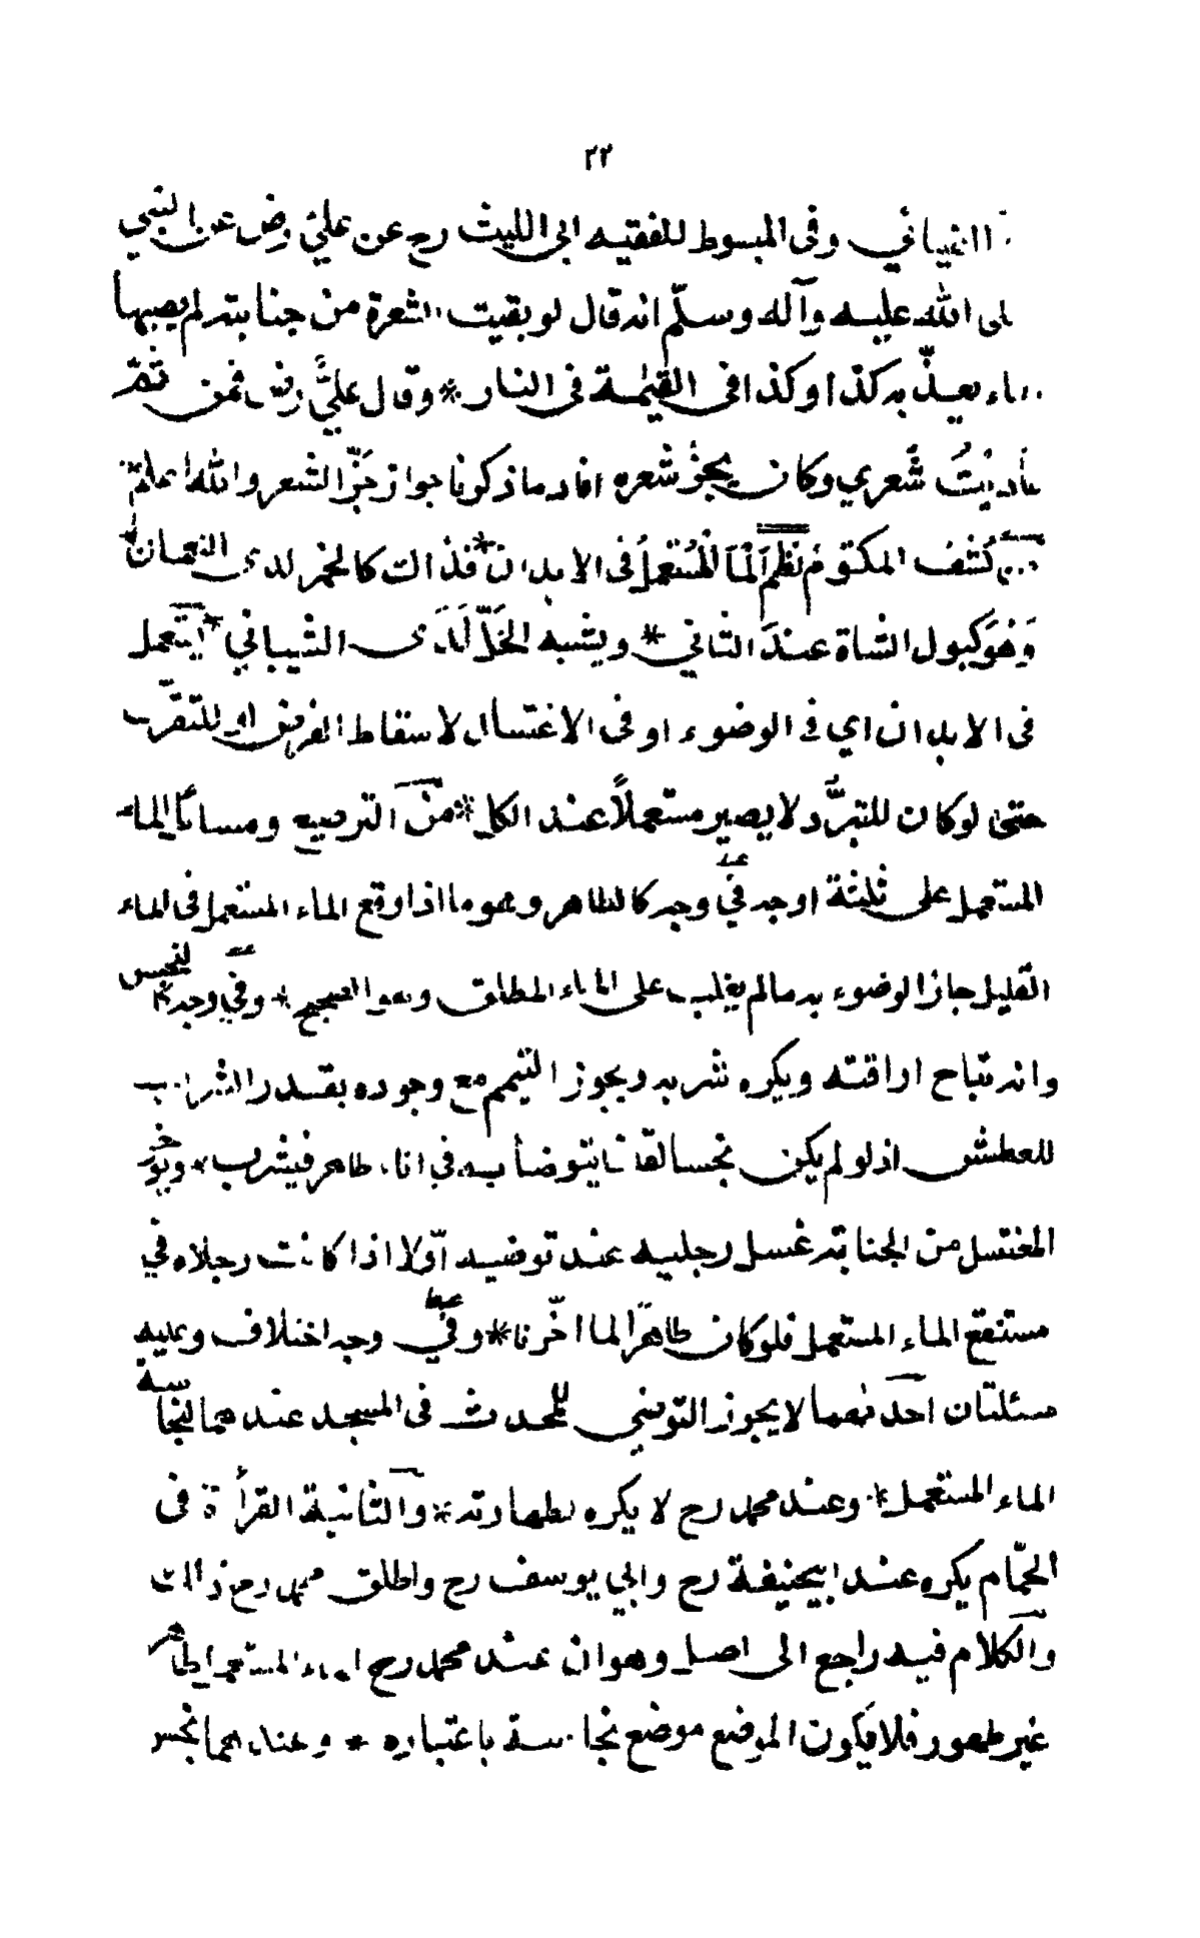 ٢٢
وفى المبسوط للفقيه ابى الليث رح عن علىّ رض عن النبى
الله عليه وآله وسلّم انه قال لو بقيت الشعرة من جنابته لم يصبها
يعذّب به كذا وكذا فى القيٰمة فى النار * وقال علىّ رض فمن ثمّ
شَعري وكان يجزّ شعره افاد ما ذكرنا جواز جَزّ الشعر والله اعلم
كشف المكتوم نظم اَلمَا المُستعملُ فى الابدان * فذاك كالخمر لدى النعمان
وَهُوَ كبول الشاة عندَ الثانى * ويشبه الخَلّ لَدَى الشيبانى * المستعمل
فى الابدان اي فى الوضوء او فى الاغتسال لاسقاط الفرض او للتقرّب
حتىّ لو كان للتبرُّد لا يصير مستعملاً عند الكل * من الترصيع ومسائل الماء
المستعمل على ثلثة اوجه فى وجه كالطاهر وهو ما اذا وقع الماء المستعمل فى الماء
القليل جاز الوضوء به ما لم يغلب على الماء المطلق وهو الصحيح * وفى وجه كالنجس
وانه تباح اراقته ويكره شربه ويجوز التيمم مع وجوده بقدر الشراب
للعطش اذ لو لم يكن نجسا لقلنا يتوضأ به فى اناء طاهر فيشرب * ويؤخر
المغتسل من الجنابة غسل رجليه عند توضيه اوّلا اذا كانت رجلاه في
مستنقع الماء المستعمل فلو كان طاهرًا لما اخّرنا * وفي وجه اختلاف وعليه
مسئلتان احدٰهما لا يجوز التوضى للمحدث فى المسجد عندهما لنجاسة
الماء المستعمل * وعند محمد رح لا يكره لطهارته * والثانية القرأة فى
الحمّام يكره عند ابيحنيفة رح وابي يوسف رح واطلق محمد رح ذلك
والكلام فيه راجع الى اصل وهو ان عند محمد رح الماء المستعمل طاهر
غير طهور فلا يكون الموضع موضع نجاسة باعتباره * وعندهما نجس